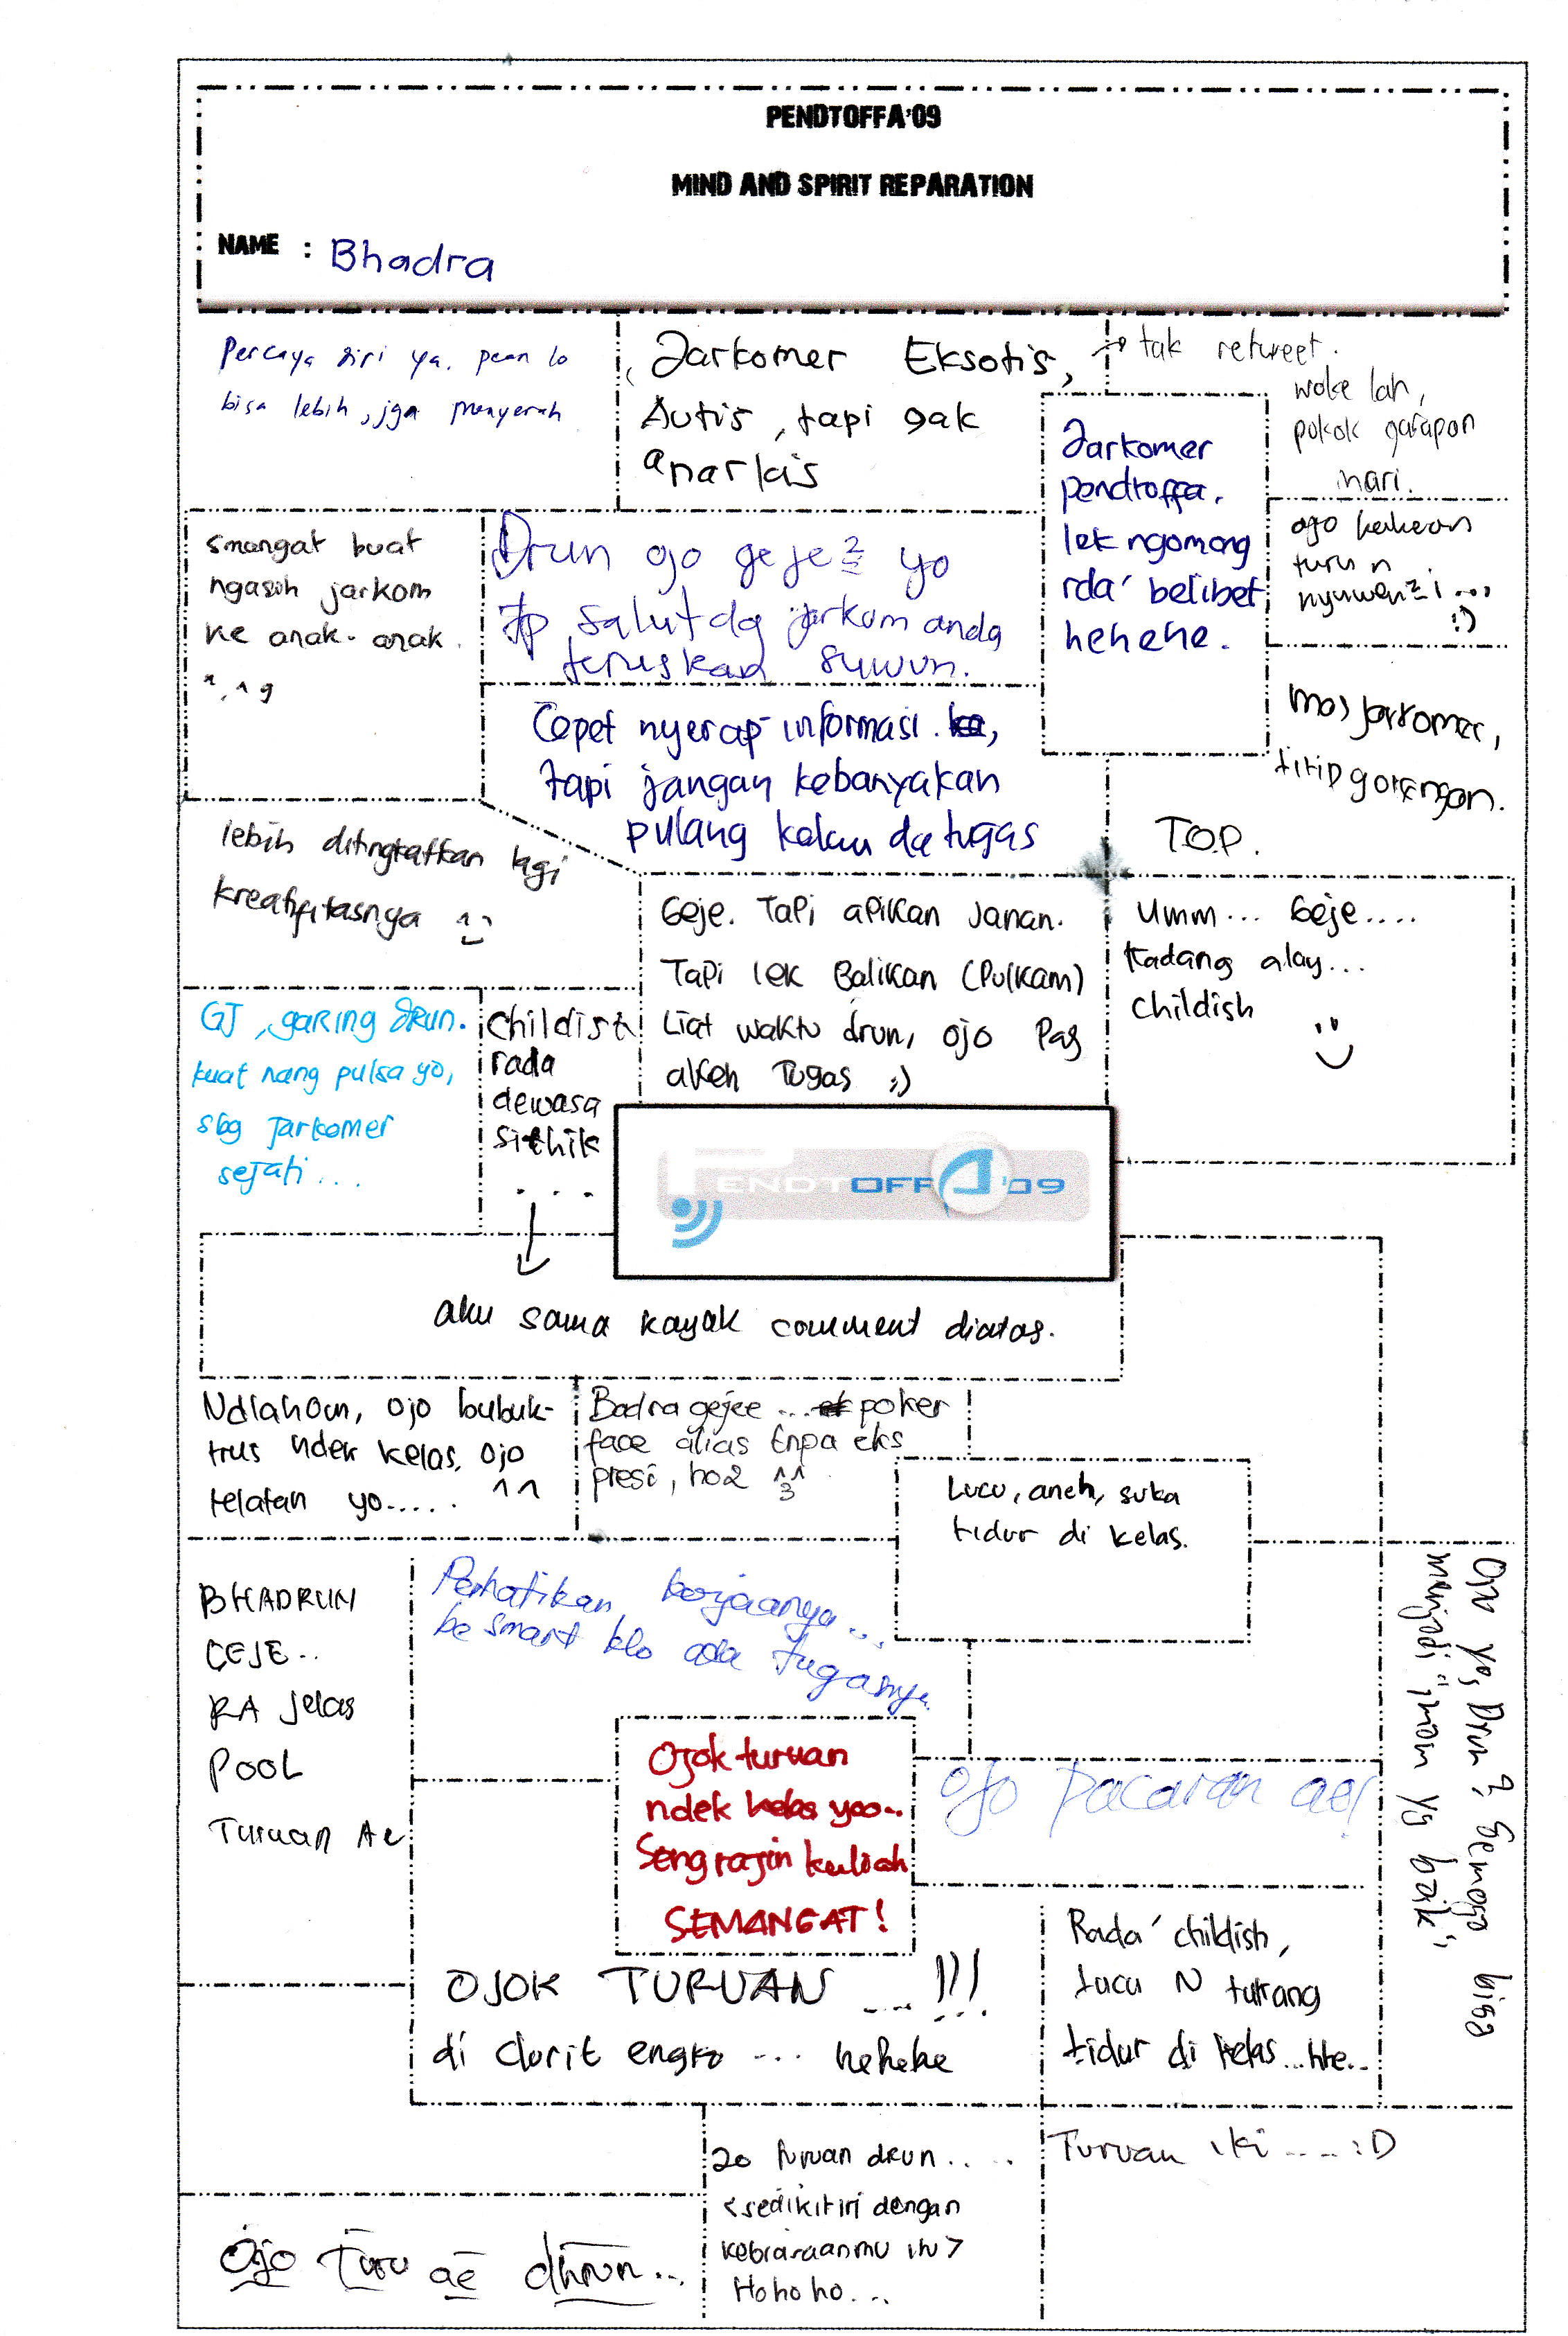 PENDTOFFA'09
MIND AND SPIRIT REPARATION
NAME : Bhadra
Percaya diri ya. pean lo
bisa lebih, jga menyerah
Jarkomer Eksotis,
Autis, tapi gak
anarkis
→ tak retweet.
woke lah,
pokok garapon
mari.
Jarkomer
pendtoffa.
lek ngomong
rda' belibet
hehehe.
smangat buat
ngasih jarkom
ke anak-anak.
^,^ g
Drun ojo geje2 yo
tp salut dg jarkom anda
teruskan suwun.
ojo kakean
turu n
nyuwen2i ...
:)
Cepet nyerap informasi.,
tapi jangan kebanyakan
pulang kalau da tugas
mas jarkomer,
titip gorengan.
T.O.P.
lebih ditingkatkan lagi
kreatifitasnya ^_^
Geje. Tapi apikan Janan.
Tapi lek Balikan (Pulkam)
Liat waktu drun, ojo Pas
akeh Tugas :)
Umm... Geje....
Kadang alay...
childish
GJ, garing drun.
kuat nang pulsa yo,
sbg Jarkomer
sejati...
Childish
rada
dewasa
sithik
...
PENDTOFFA'09
aku sama kayak comment diatas.
Ndlahom, ojo bubuk-
trus ndek kelas. ojo
telatan yo..... ^^
Badra gejee ... poker
face alias tnpa eks
presi, ho2 ^3^
Lucu, aneh, suka
tidur di kelas.
BHADRUN
GEJE..
RA Jelas
POOL
Turuan Ae
Perhatikan kerjaanya...
be smart klo ada tugasnya.
Ojo yo, Drun? Semoga bisa
menjadi "imam yg baik"
Ojok turuan
ndek kelas yoo..
Seng rajin kuliah
SEMANGAT!
ojo pacaran ae!
OJOK TURUAN ....!!!
di clurit engko ... hehehe
Rada' childish,
lucu N tukang
tidur di kelas...hhe..
Jo turuan drun.....
<sedikit iri dengan
kebiasaanmu itu>
Hohoho...
Turuan iki ..... :D
Ojo Turu ae dhrun...